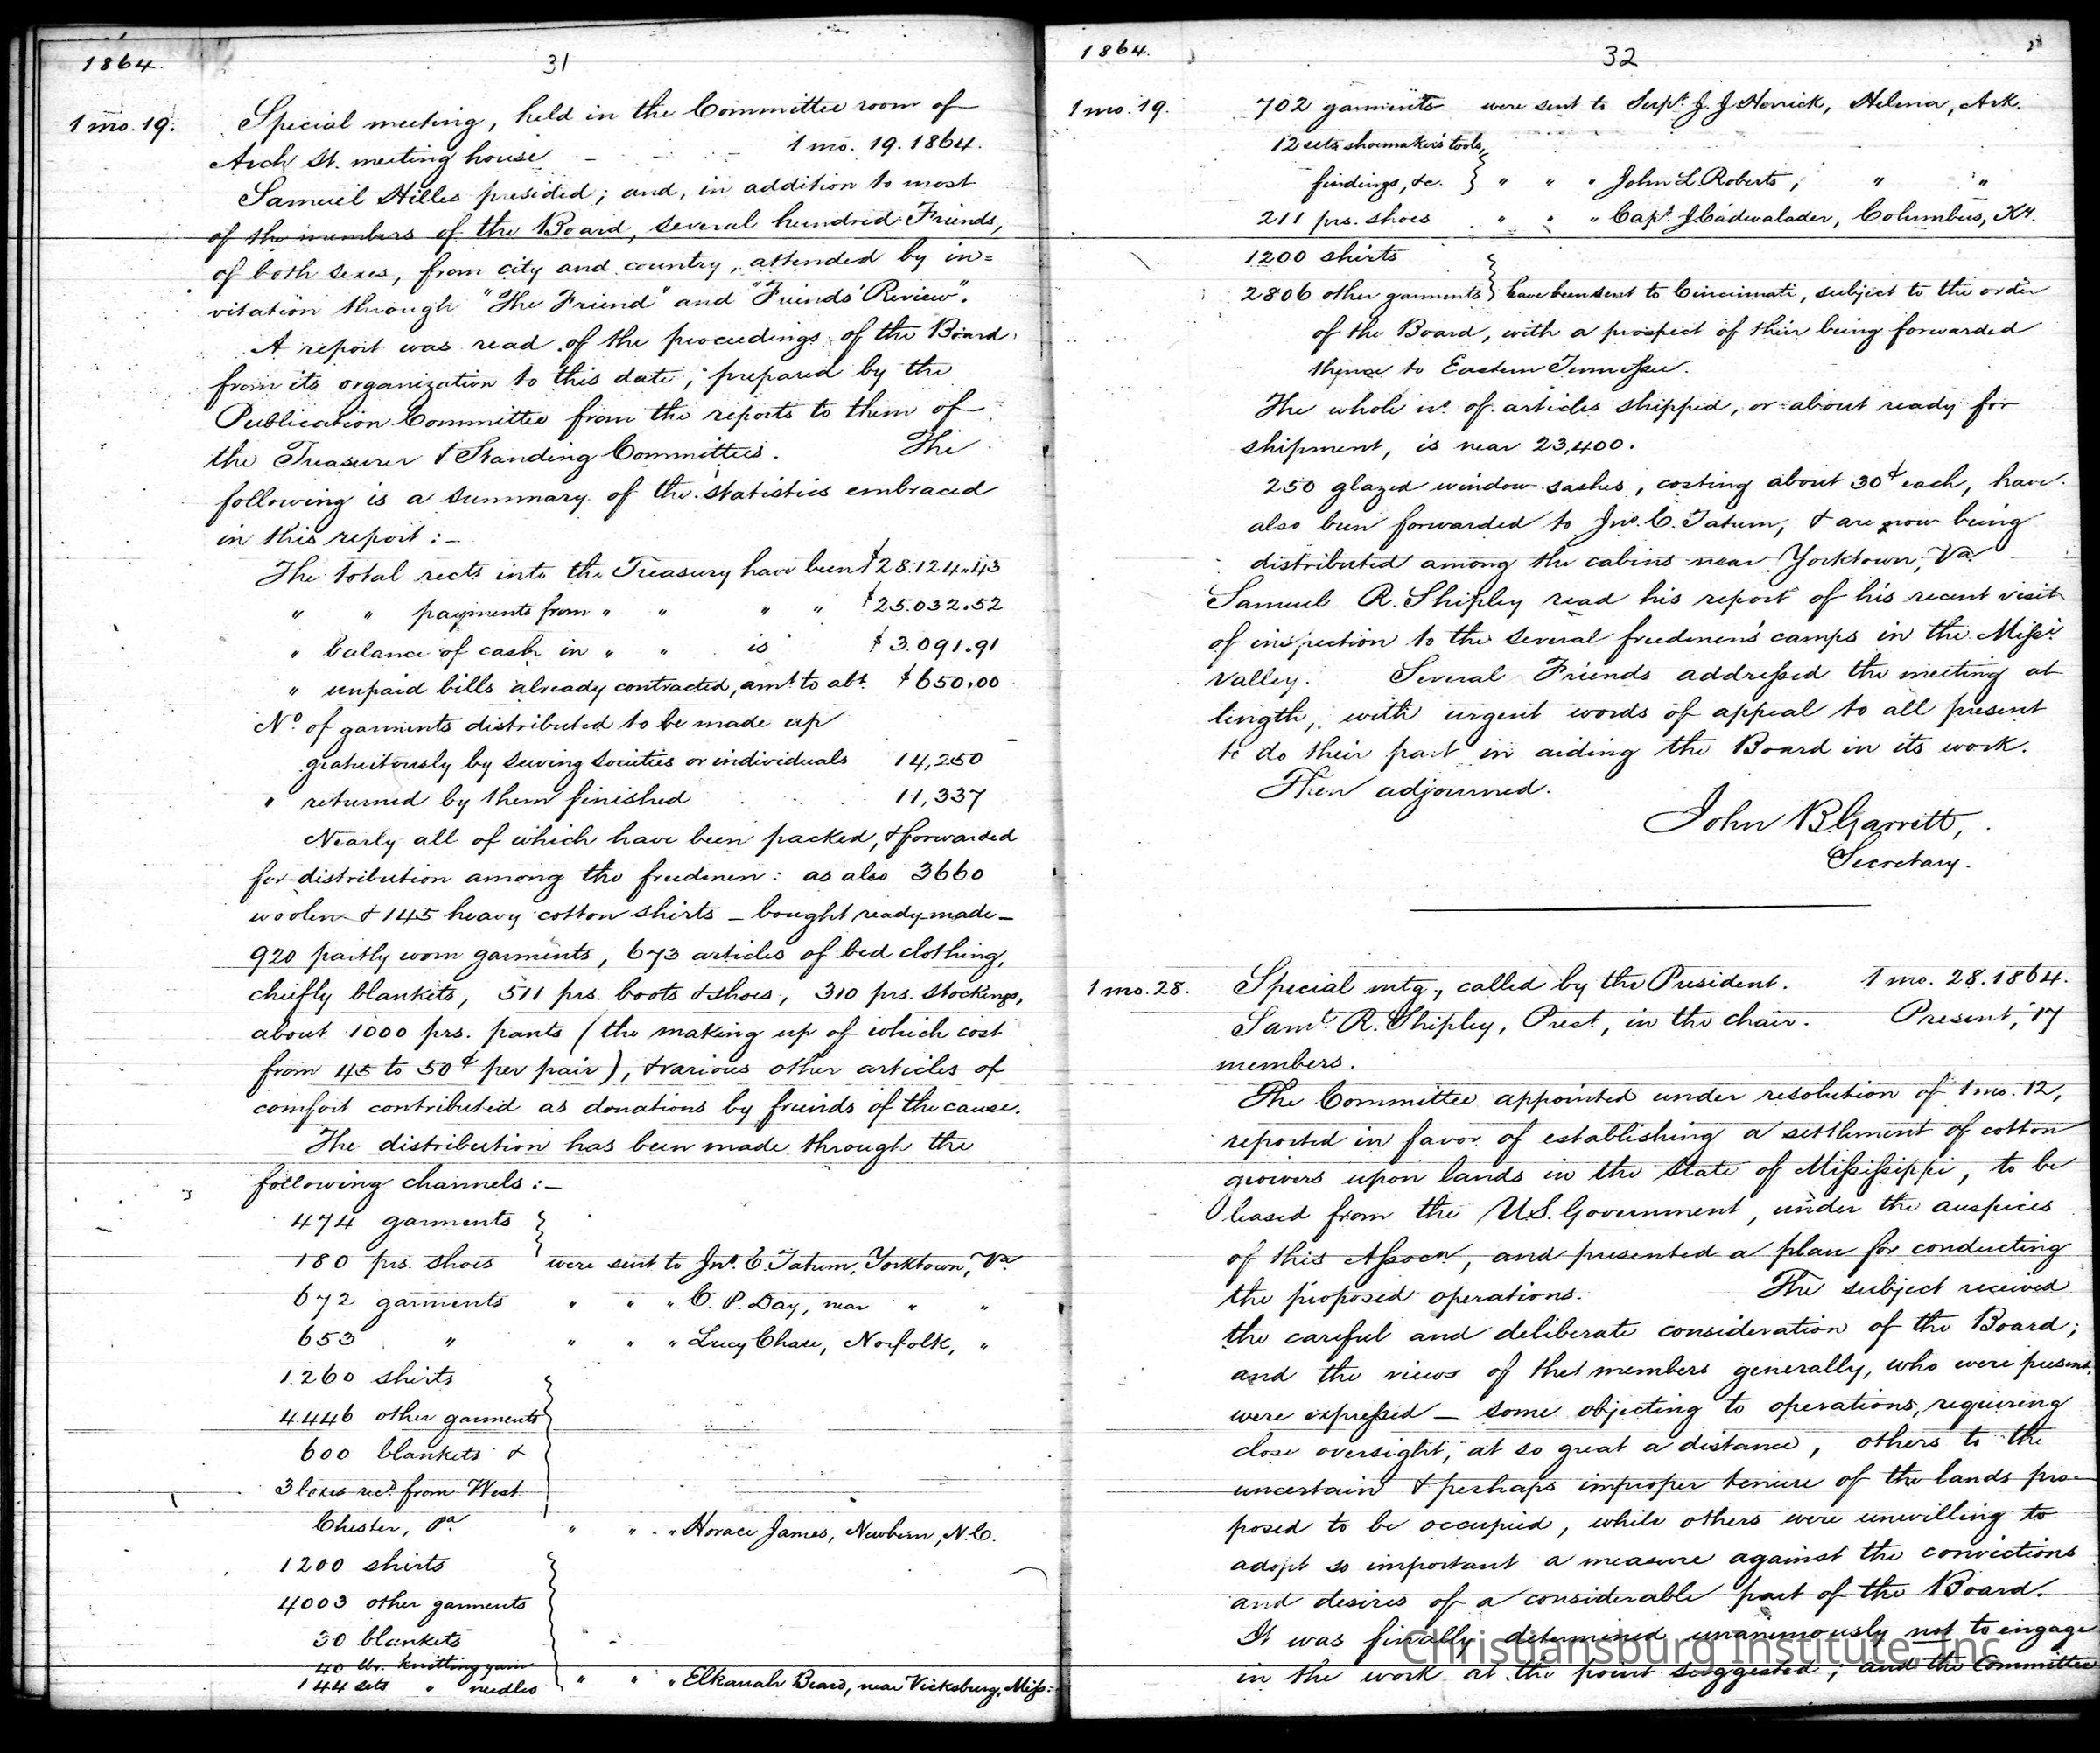 1864.
31
1 mo. 19.
Special meeting, held in the Committee room of
Arch St. meeting house - - - 1 mo. 19. 1864.
Samuel Hilles presided; and, in addition to most
of the members of the Board, several hundred Friends,
of both sexes, from city and country, attended by in=
vitation through "The Friend" and "Friends' Review".
A report was read of the proceedings of the Board
from its organization to this date, prepared by the
Publication Committee from the reports to them of
the Treasurer & Standing Committees. The
following is a summary of the statistics embraced
in this report:-
The total rects into the Treasury have been $28.124.43
" " payments from " " " " $25.032.52
" balance of cash in " " is $3.091.91
" unpaid bills already contracted, amt. to abt. $650.00
No. of garments distributed to be made up
gratuitously by sewing societies or individuals 14,250
" returned by them finished 11,337
Nearly all of which have been packed, & forwarded
for distribution among the freedmen: as also 3660
woolen & 145 heavy cotton shirts - bought ready-made -
920 partly worn garments, 673 articles of bed clothing,
chiefly blankets, 511 prs. boots & shoes, 310 prs. stockings,
about 1000 prs. pants (the making up of which cost
from 45 to 50¢ per pair), & various other articles of
comfort contributed as donations by friends of the cause.
The distribution has been made through the
following channels:-
474 garments
180 prs. shoes } were sent to Jno. C. Tatum, Yorktown, Va.
672 garments " " " C. P. Day, near " "
653 " " " " Lucy Chase, Norfolk, "
1.260 shirts
4.446 other garments
600 blankets &
3 boxes recd. from West
Chester, Pa. } " " " Horace James, Newbern, N.C.
1200 shirts
4003 other garments
30 blankets
40 lbs. knitting yarn
144 sets " needles } " " " Elkanah Beard, near Vicksburg, Miss.
1864.
32
1 mo. 19.
702 garments were sent to Supt. J. J. Herrick, Helena, Ark.
12 sets shoemaker's tools,
findings, &c. } " " " John L. Roberts, " "
211 prs. shoes " " " Capt. J Cadwalader, Columbus, Ky.
1200 shirts
2806 other garments } have been sent to Cincinnati, subject to the order
of the Board, with a prospect of their being forwarded
thence to Eastern Tennessee.
The whole no. of articles shipped, or about ready for
shipment, is near 23,400.
250 glazed window sashes, costing about 30¢ each, have
also been forwarded to Jno. C. Tatum, & are now being
distributed among the cabins near Yorktown, Va.
Samuel R. Shipley read his report of his recent visit
of inspection to the several freedmen's camps in the Missi.
valley. Several Friends addressed the meeting at
length, with urgent words of appeal to all present
to do their part in aiding the Board in its work.
Then adjourned.
John B. Garrett,
Secretary.
1 mo. 28.
Special mtg., called by the President. 1 mo. 28. 1864.
Saml. R. Shipley, Prest., in the chair. Present, 17
members.
The Committee appointed under resolution of 1 mo. 12,
reported in favor of establishing a settlement of cotton
growers upon lands in the State of Mississippi, to be
leased from the U.S. Government, under the auspices
of this Assocn., and presented a plan for conducting
the proposed operations. The subject received
the careful and deliberate consideration of the Board;
and the views of the members generally, who were present,
were expressed - some objecting to operations, requiring
close oversight, at so great a distance, others to the
uncertain & perhaps improper tenure of the lands pro-
posed to be occupied, while others were unwilling to
adopt so important a measure against the convictions
and desires of a considerable part of the Board.
It was finally determined unanimously not to engage
in the work at the point suggested; and the Committee
Christiansburg Institute, Inc.